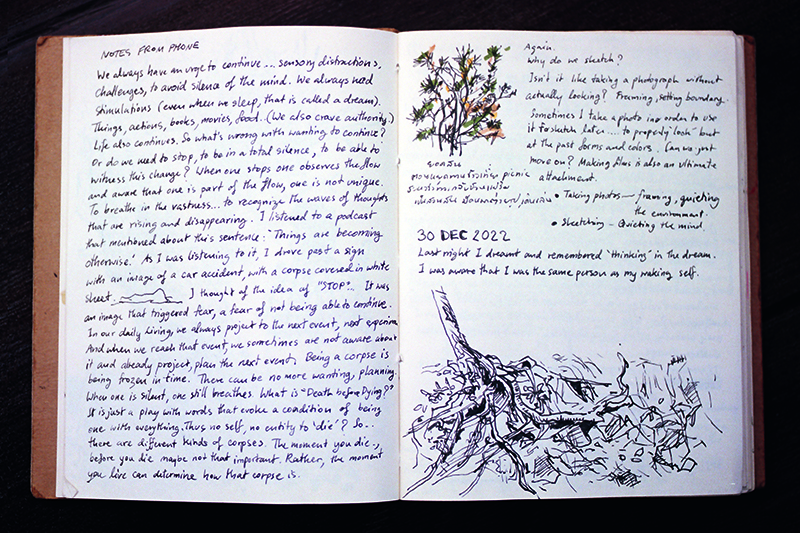 NOTES FROM PHONE
We always have an urge to continue.... sensory distractions,
challenges, to avoid silence of the mind. We always need
stimulations (even when we sleep, that is called a dream).
Things, actions, books, movies, food. (We also crave authority.)
Life also continues. So what's wrong with wanting to continue?
Or do we need to stop, to be in a total silence, to be able to
witness this change? When one stops one observes the flow
and aware that one is part of the flow, one is not unique.
To breathe in the vastness... to recognize the waves of thoughts
that are rising and disappearing. I listened to a podcast
that mentioned about this sentence: 'Things are becoming
otherwise.' As I was listening to it, I drove past a sign
with an image of a car accident, with a corpse covered in white
sheet. I thought of the idea of "STOP"... It was
an image that triggered fear, a fear of not being able to continue.
In our daily living, we always project to the next event, next experience
And when we reach that event, we sometimes are not aware about
it and already project, plan the next event. Being a corpse is
being frozen in time. There can be no more wanting, planning.
When one is silent, one still breathes. What is "Death before Dying?"
It is just a play with words that evoke a condition of being
one with everything. Thus no self, no entity to 'die'? So..
there are different kinds of corpses. The moment you die.,
before you die maybe not that important. Rather, the moment
you live can determine how that corpse is.
Again.
Why do we sketch?
Isn't it like taking a photograph without
actually looking? Framing, setting boundary.
Sometimes I take a photo in order to use
it to sketch later.... to 'properly look' but
at the past forms and colors. Can we just
move on? Making films is also an ultimate
attachment.
picnic
• Taking photos — framing, quieting
the environment.
• Sketching — Quieting the mind.
30 DEC 2022
Last night I dreamt and remembered 'thinking' in the dream.
I was aware that I was the same person as my waking self.